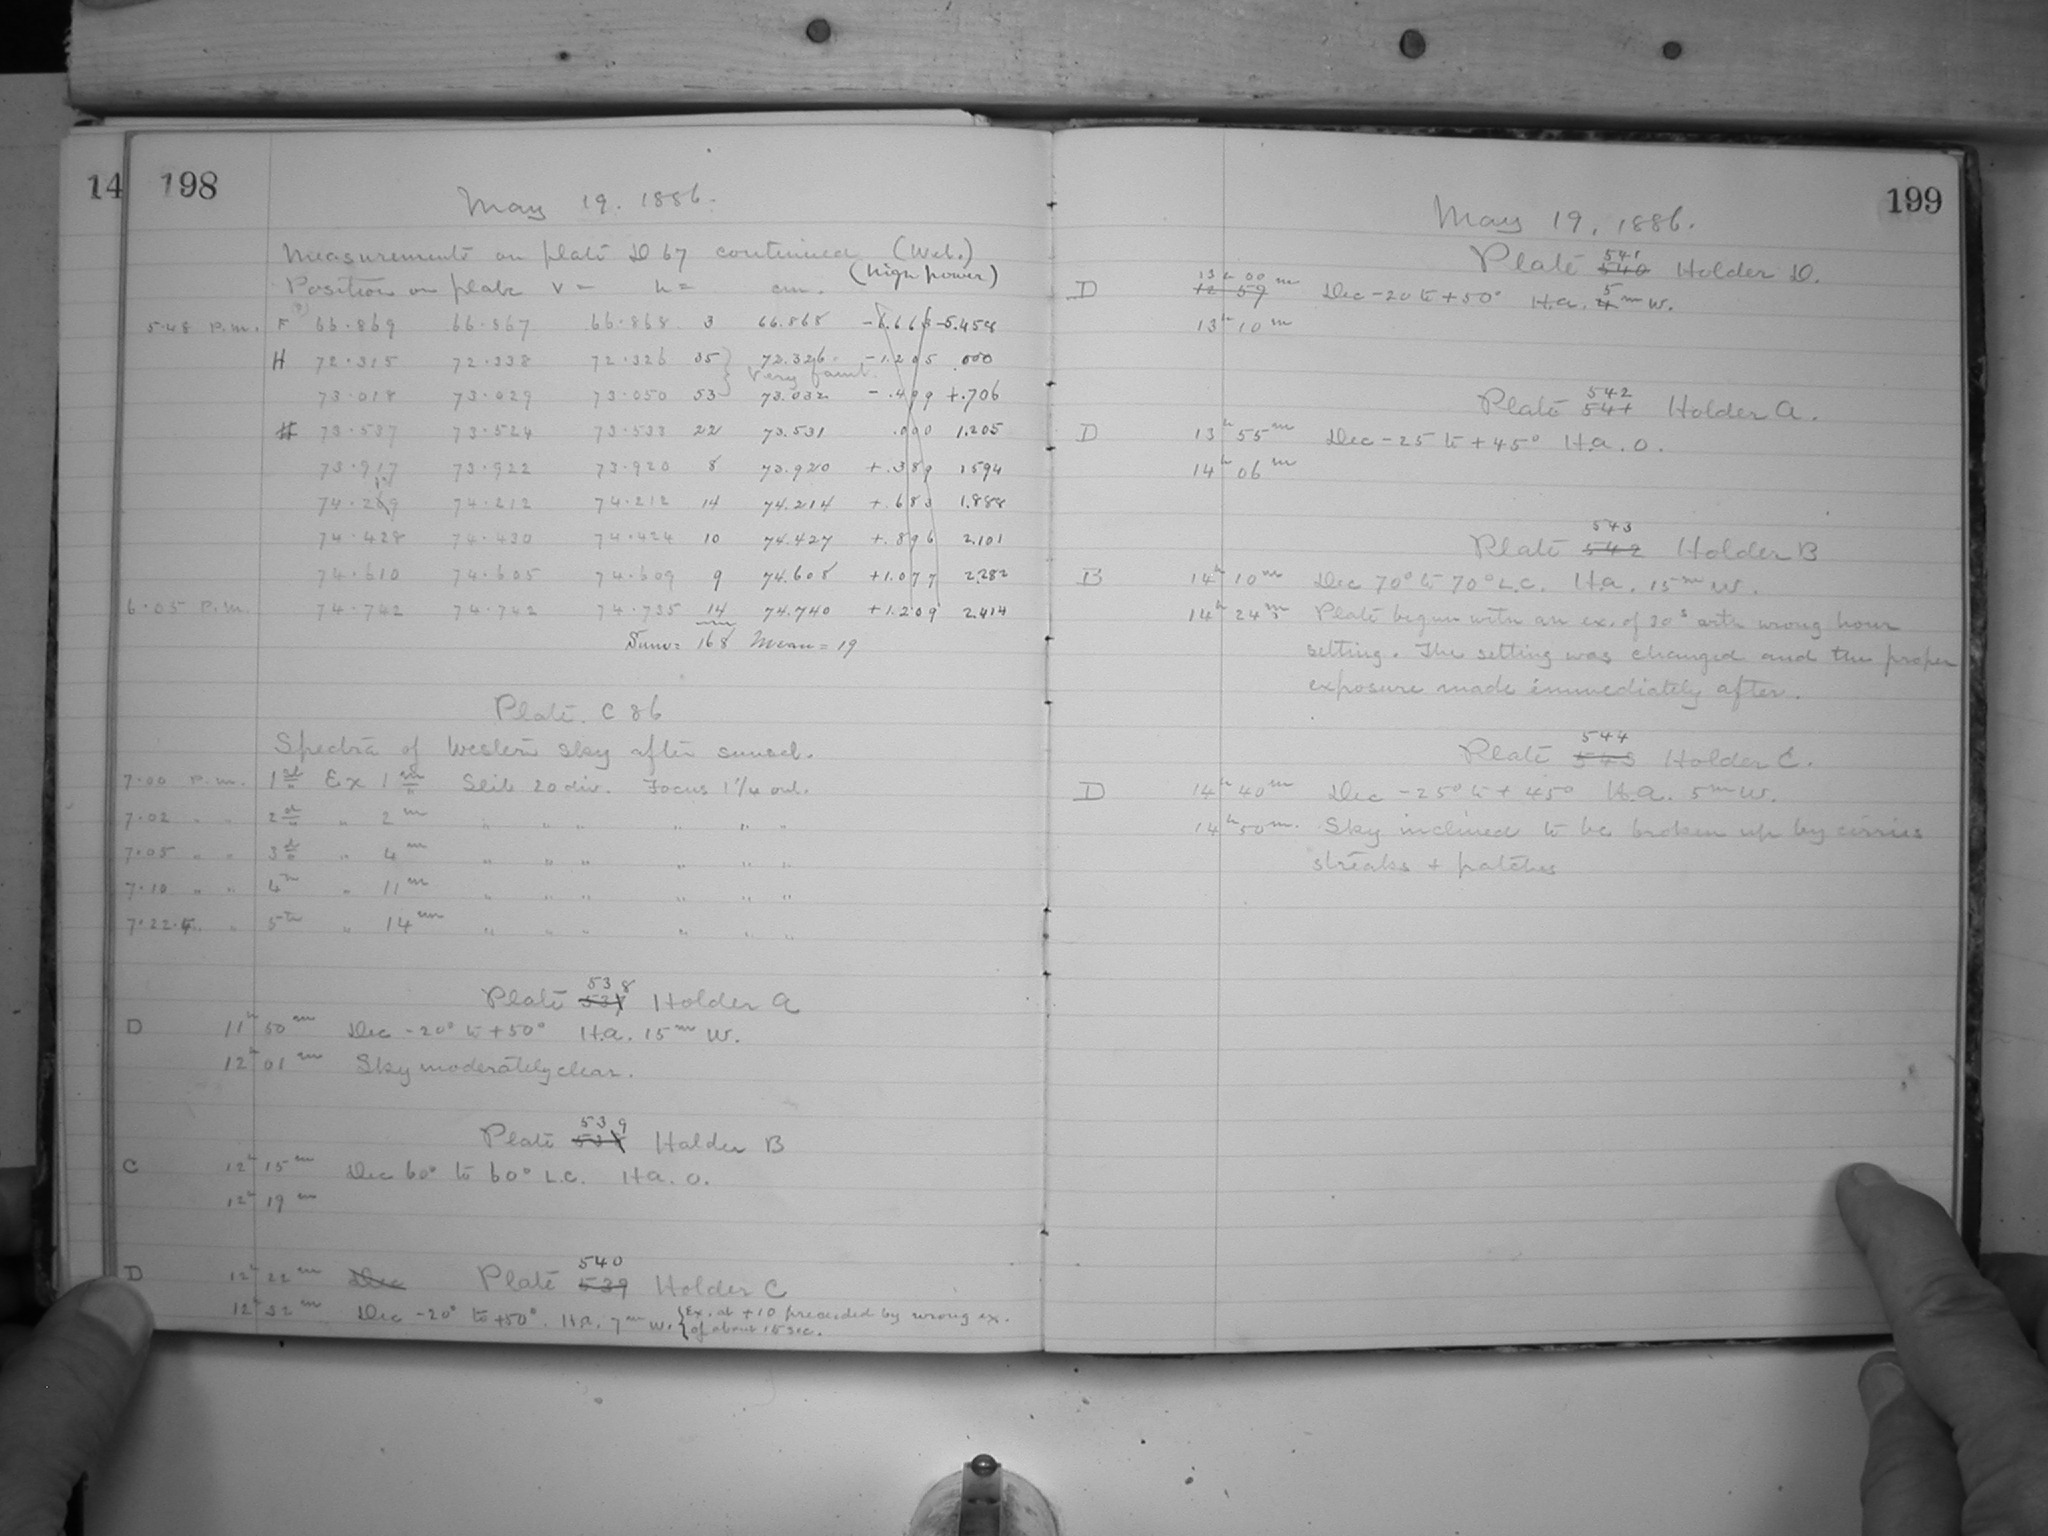 14 198
May 19. 1886.
Measurements on plate D 67 continued (Wed.)
Position on plate v = h = cm. (high power)
5.48 P.M. F 66.869 66.867 66.868 3 66.868 -6.663 -5.458
H 72.315 72.338 72.326 35 72.326 -1.205 .000
very faint
73.018 73.029 73.050 53 73.032 -.499 +.706
H 73.537 73.524 73.533 22 73.531 .000 1.205
73.917 73.922 73.920 8 73.920 +.389 1594
74.219 74.212 74.212 14 74.214 +.683 1.888
74.428 74.430 74.424 10 74.427 +.896 2.101
74.610 74.605 74.609 9 74.608 +1.077 2.282
6.05 P.M. 74.742 74.742 74.735 14 74.740 +1.209 2.414
Sum = 168 Mean = 19
Plate. C 86
Spectra of Western sky after sunset.
7.00 P.M. 1st Ex 1m Slit 20 div. Focus 1 1/4 out.
7.02 " " 2d " 2m " " " " " "
7.05 " " 3d " 4m " " " " " "
7.10 " " 4th " 11m " " " " " "
7.22.5 " 5th " 14m " " " " " "
538
Plate 537 Holder A
D 11h 50m Dec -20° to +50° H.a. 15m W.
12h 01m Sky moderately clear.
539
Plate 538 Holder B
C 12h 15m Dec 60° to 60° L.C. H.a. 0.
12h 19m
540
D 12h 22m Dec Plate 539 Holder C
12h 32m Dec -20° to +50°. H.a. 7m W. {Ex. at +10 preceded by wrong ex.
of about 15 sec.
199
May 19, 1886.
541
Plate 540 Holder D.
13h 00m
D 12 59 Dec -20 to +50° H.a. 5 4m W.
13h 10m
542
Plate 541 Holder A.
D 13h 55m Dec -25 to +45° H.a. 0.
14h 06m
543
Plate 542 Holder B
B 14h 10m Dec 70° to 70° L.C. H.a. 15m W.
14h 24m Plate begun with an ex. of 20s with wrong hour
setting. The setting was changed and the proper
exposure made immediately after.
544
Plate 543 Holder C.
D 14h 40m Dec -25° to +45° H.a. 5m W.
14h 50m. Sky inclined to be broken up by cirrus
streaks + patches